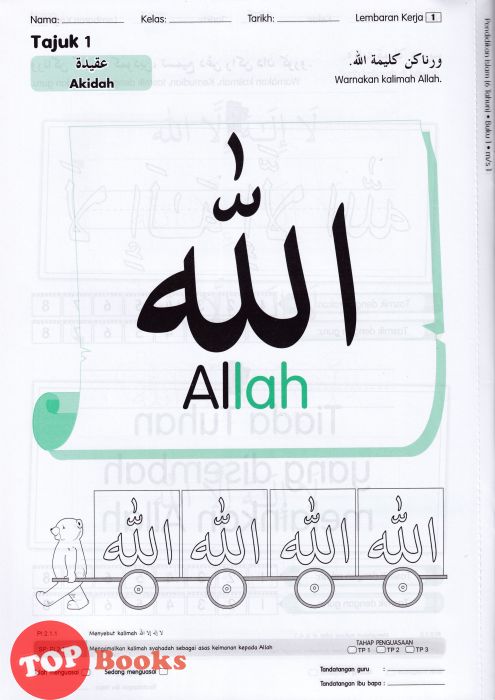 Nama: Kelas: Tarikh: Lembaran Kerja 1
Tajuk 1
عقيدة
Akidah
ورناكن كليمة الله.
Warnakan kalimah Allah.
الله
Allah
الله الله الله الله
PI 2.1.1 Menyebut kalimah لا إله إلا الله
Mengamalkan kalimah syahadah sebagai asas keimanan kepada Allah
TAHAP PENGUASAAN
TP 1 TP 2 TP 3
menguasai Sedang menguasai
Tandatangan guru :
Tandatangan ibu bapa :
Pendidikan Islam (6 Tahun) • Buku 1 • m/s 1
TOP Books